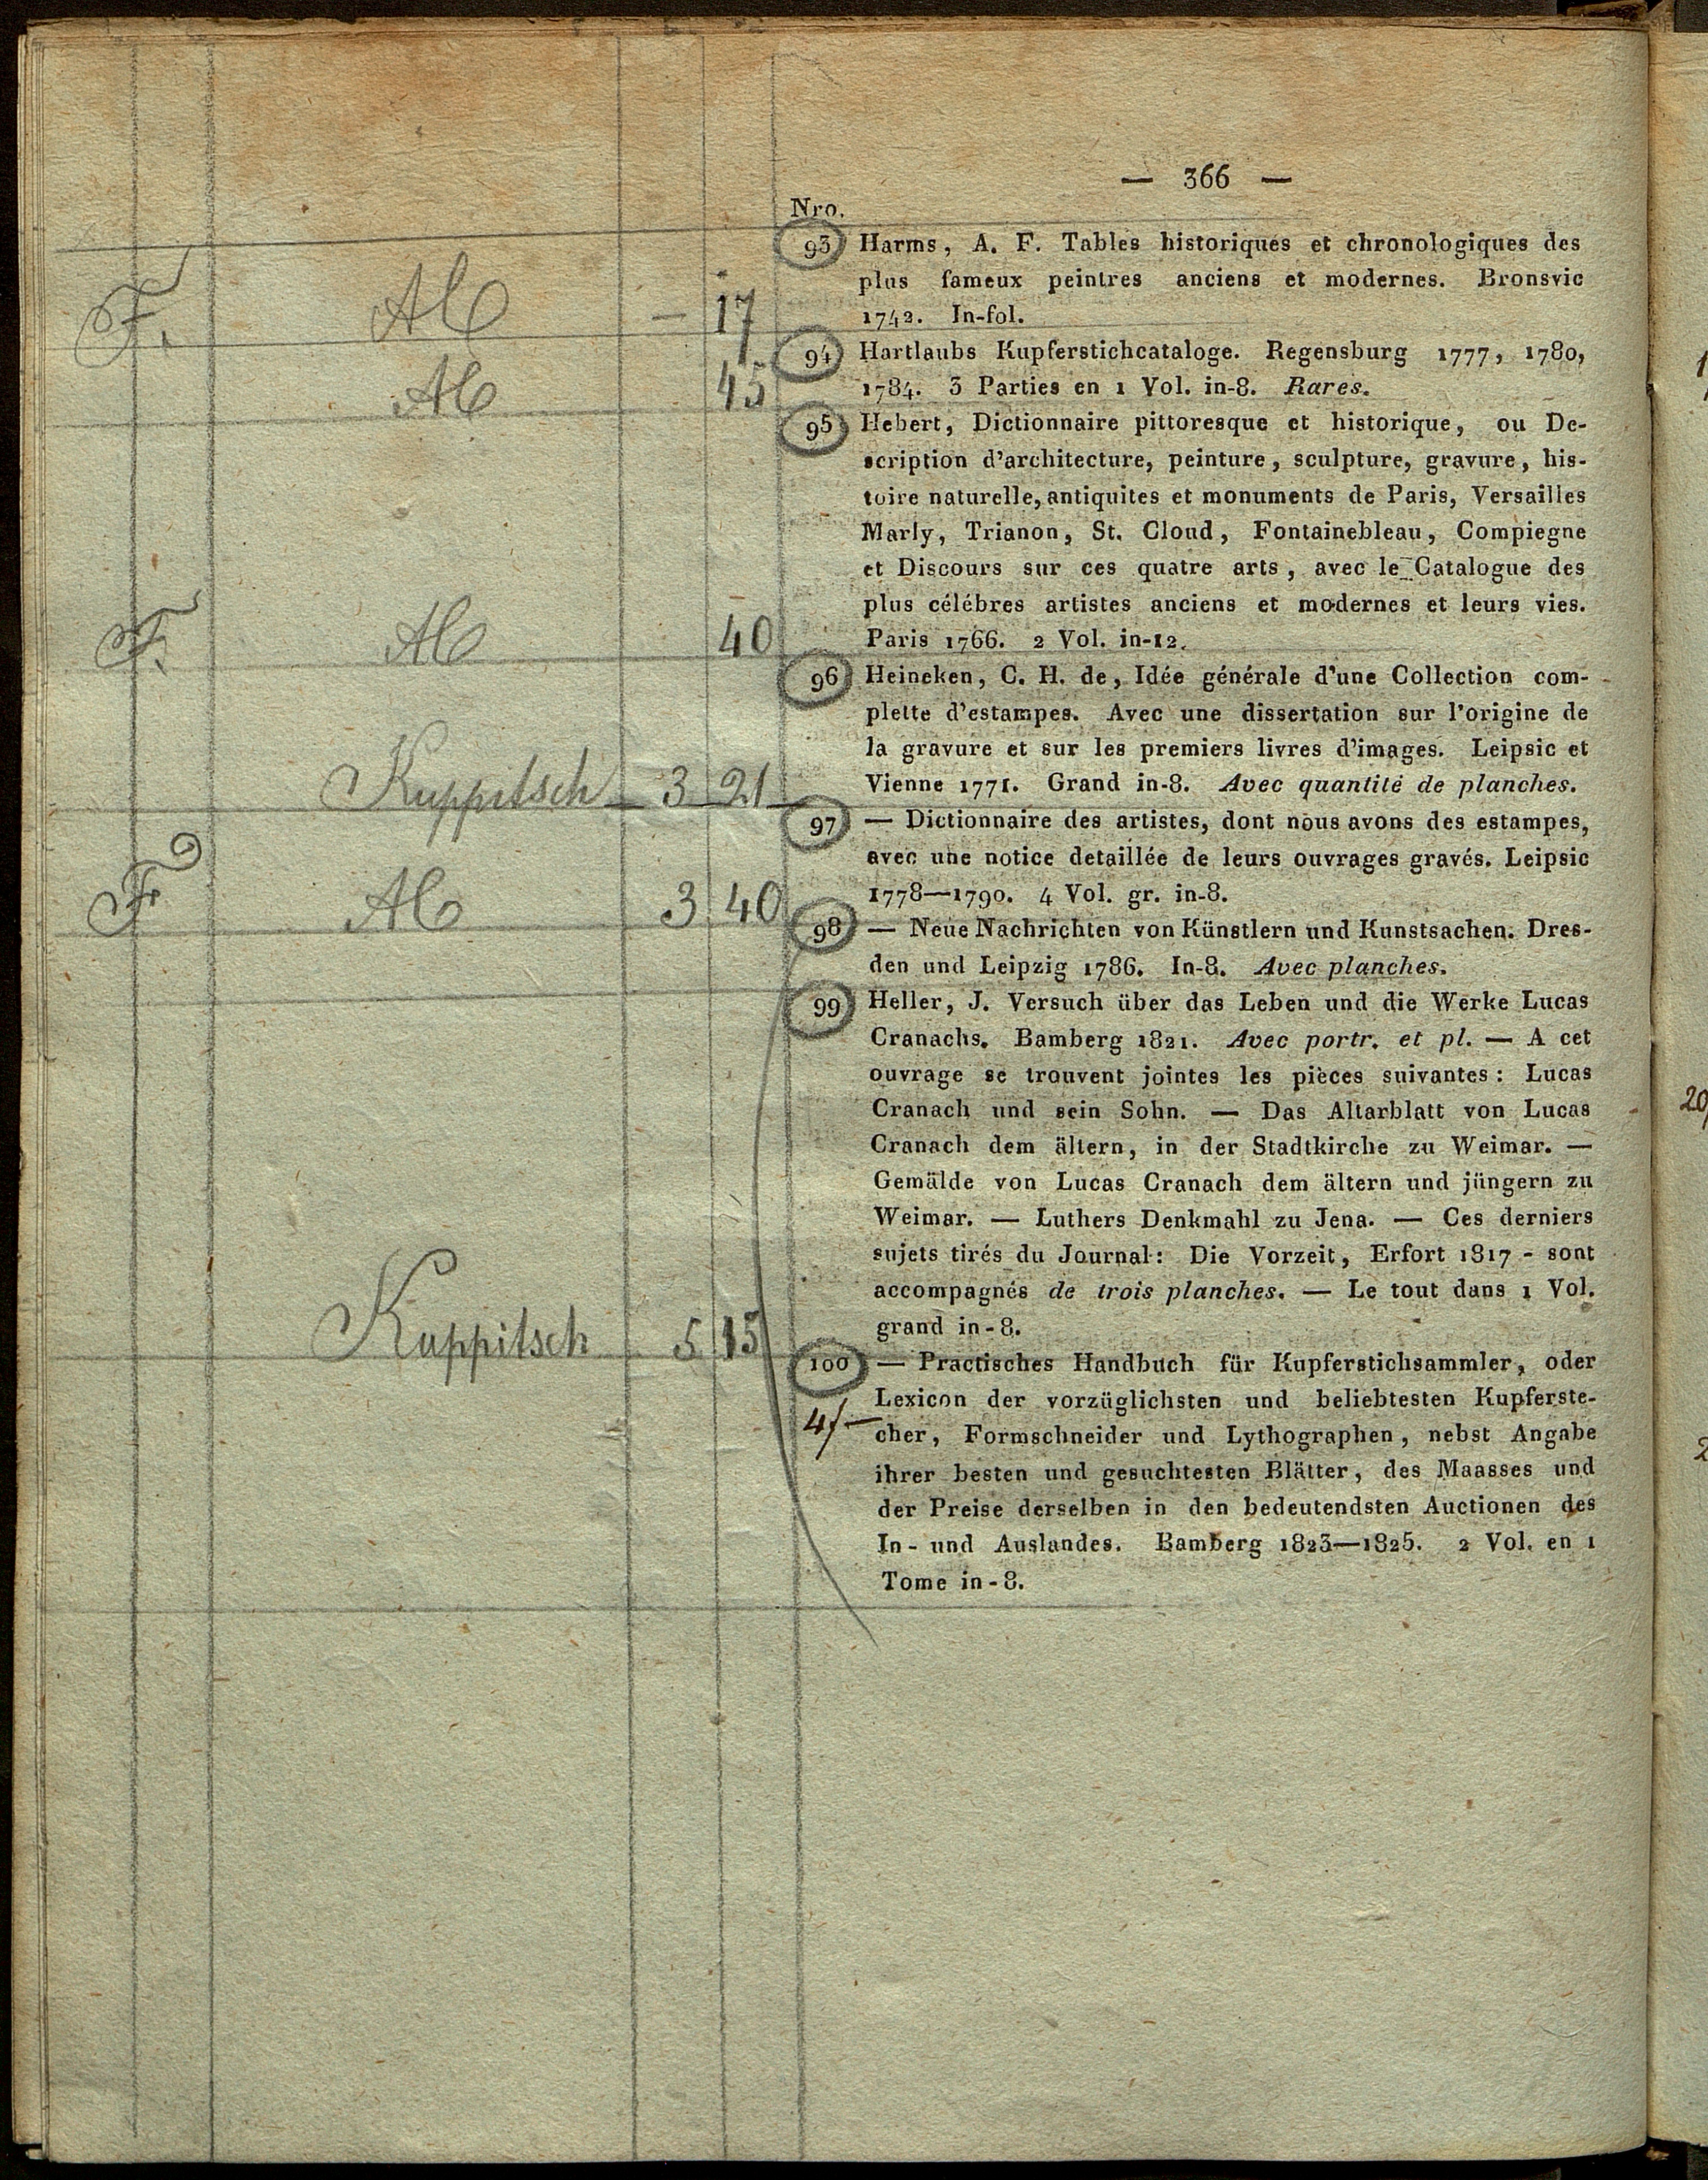 — 366 —
Nro.
93 Harms, A. F. Tables historiques et chronologiques des
plus fameux peintres anciens et modernes. Bronsvic
1742. In-fol.
F. — 17
94 Hartlaubs Kupferstichcataloge. Regensburg 1777, 1780,
1784. 3 Parties en 1 Vol. in-8. Rares.
45
95 Hebert, Dictionnaire pittoresque et historique, ou De-
scription d'architecture, peinture, sculpture, gravure, his-
toire naturelle, antiquites et monuments de Paris, Versailles
Marly, Trianon, St. Cloud, Fontainebleau, Compiegne
et Discours sur ces quatre arts, avec le Catalogue des
plus célébres artistes anciens et modernes et leurs vies.
Paris 1766. 2 Vol. in-12.
F. 40
96 Heineken, C. H. de, Idée générale d'une Collection com-
plette d'estampes. Avec une dissertation sur l'origine de
la gravure et sur les premiers livres d'images. Leipsic et
Vienne 1771. Grand in-8. Avec quantité de planches.
Kuppitsch 3 21
97 — Dictionnaire des artistes, dont nous avons des estampes,
avec une notice detaillée de leurs ouvrages gravés. Leipsic
1778—1790. 4 Vol. gr. in-8.
F 3 40
98 — Neue Nachrichten von Künstlern und Kunstsachen. Dres-
den und Leipzig 1786. In-8. Avec planches.
99 Heller, J. Versuch über das Leben und die Werke Lucas
Cranachs. Bamberg 1821. Avec portr. et pl. — A cet
ouvrage se trouvent jointes les pièces suivantes: Lucas
Cranach und sein Sohn. — Das Altarblatt von Lucas
Cranach dem ältern, in der Stadtkirche zu Weimar. —
Gemälde von Lucas Cranach dem ältern und jüngern zu
Weimar. — Luthers Denkmahl zu Jena. — Ces derniers
sujets tirés du Journal: Die Vorzeit, Erfort 1817 - sont
accompagnés de trois planches. — Le tout dans 1 Vol.
grand in-8.
Kuppitsch 5 15
100 — Practisches Handbuch für Kupferstichsammler, oder
Lexicon der vorzüglichsten und beliebtesten Kupferste-
4/—
cher, Formschneider und Lythographen, nebst Angabe
ihrer besten und gesuchtesten Blätter, des Maasses und
der Preise derselben in den bedeutendsten Auctionen des
In- und Auslandes. Bamberg 1823—1825. 2 Vol. en 1
Tome in-8.